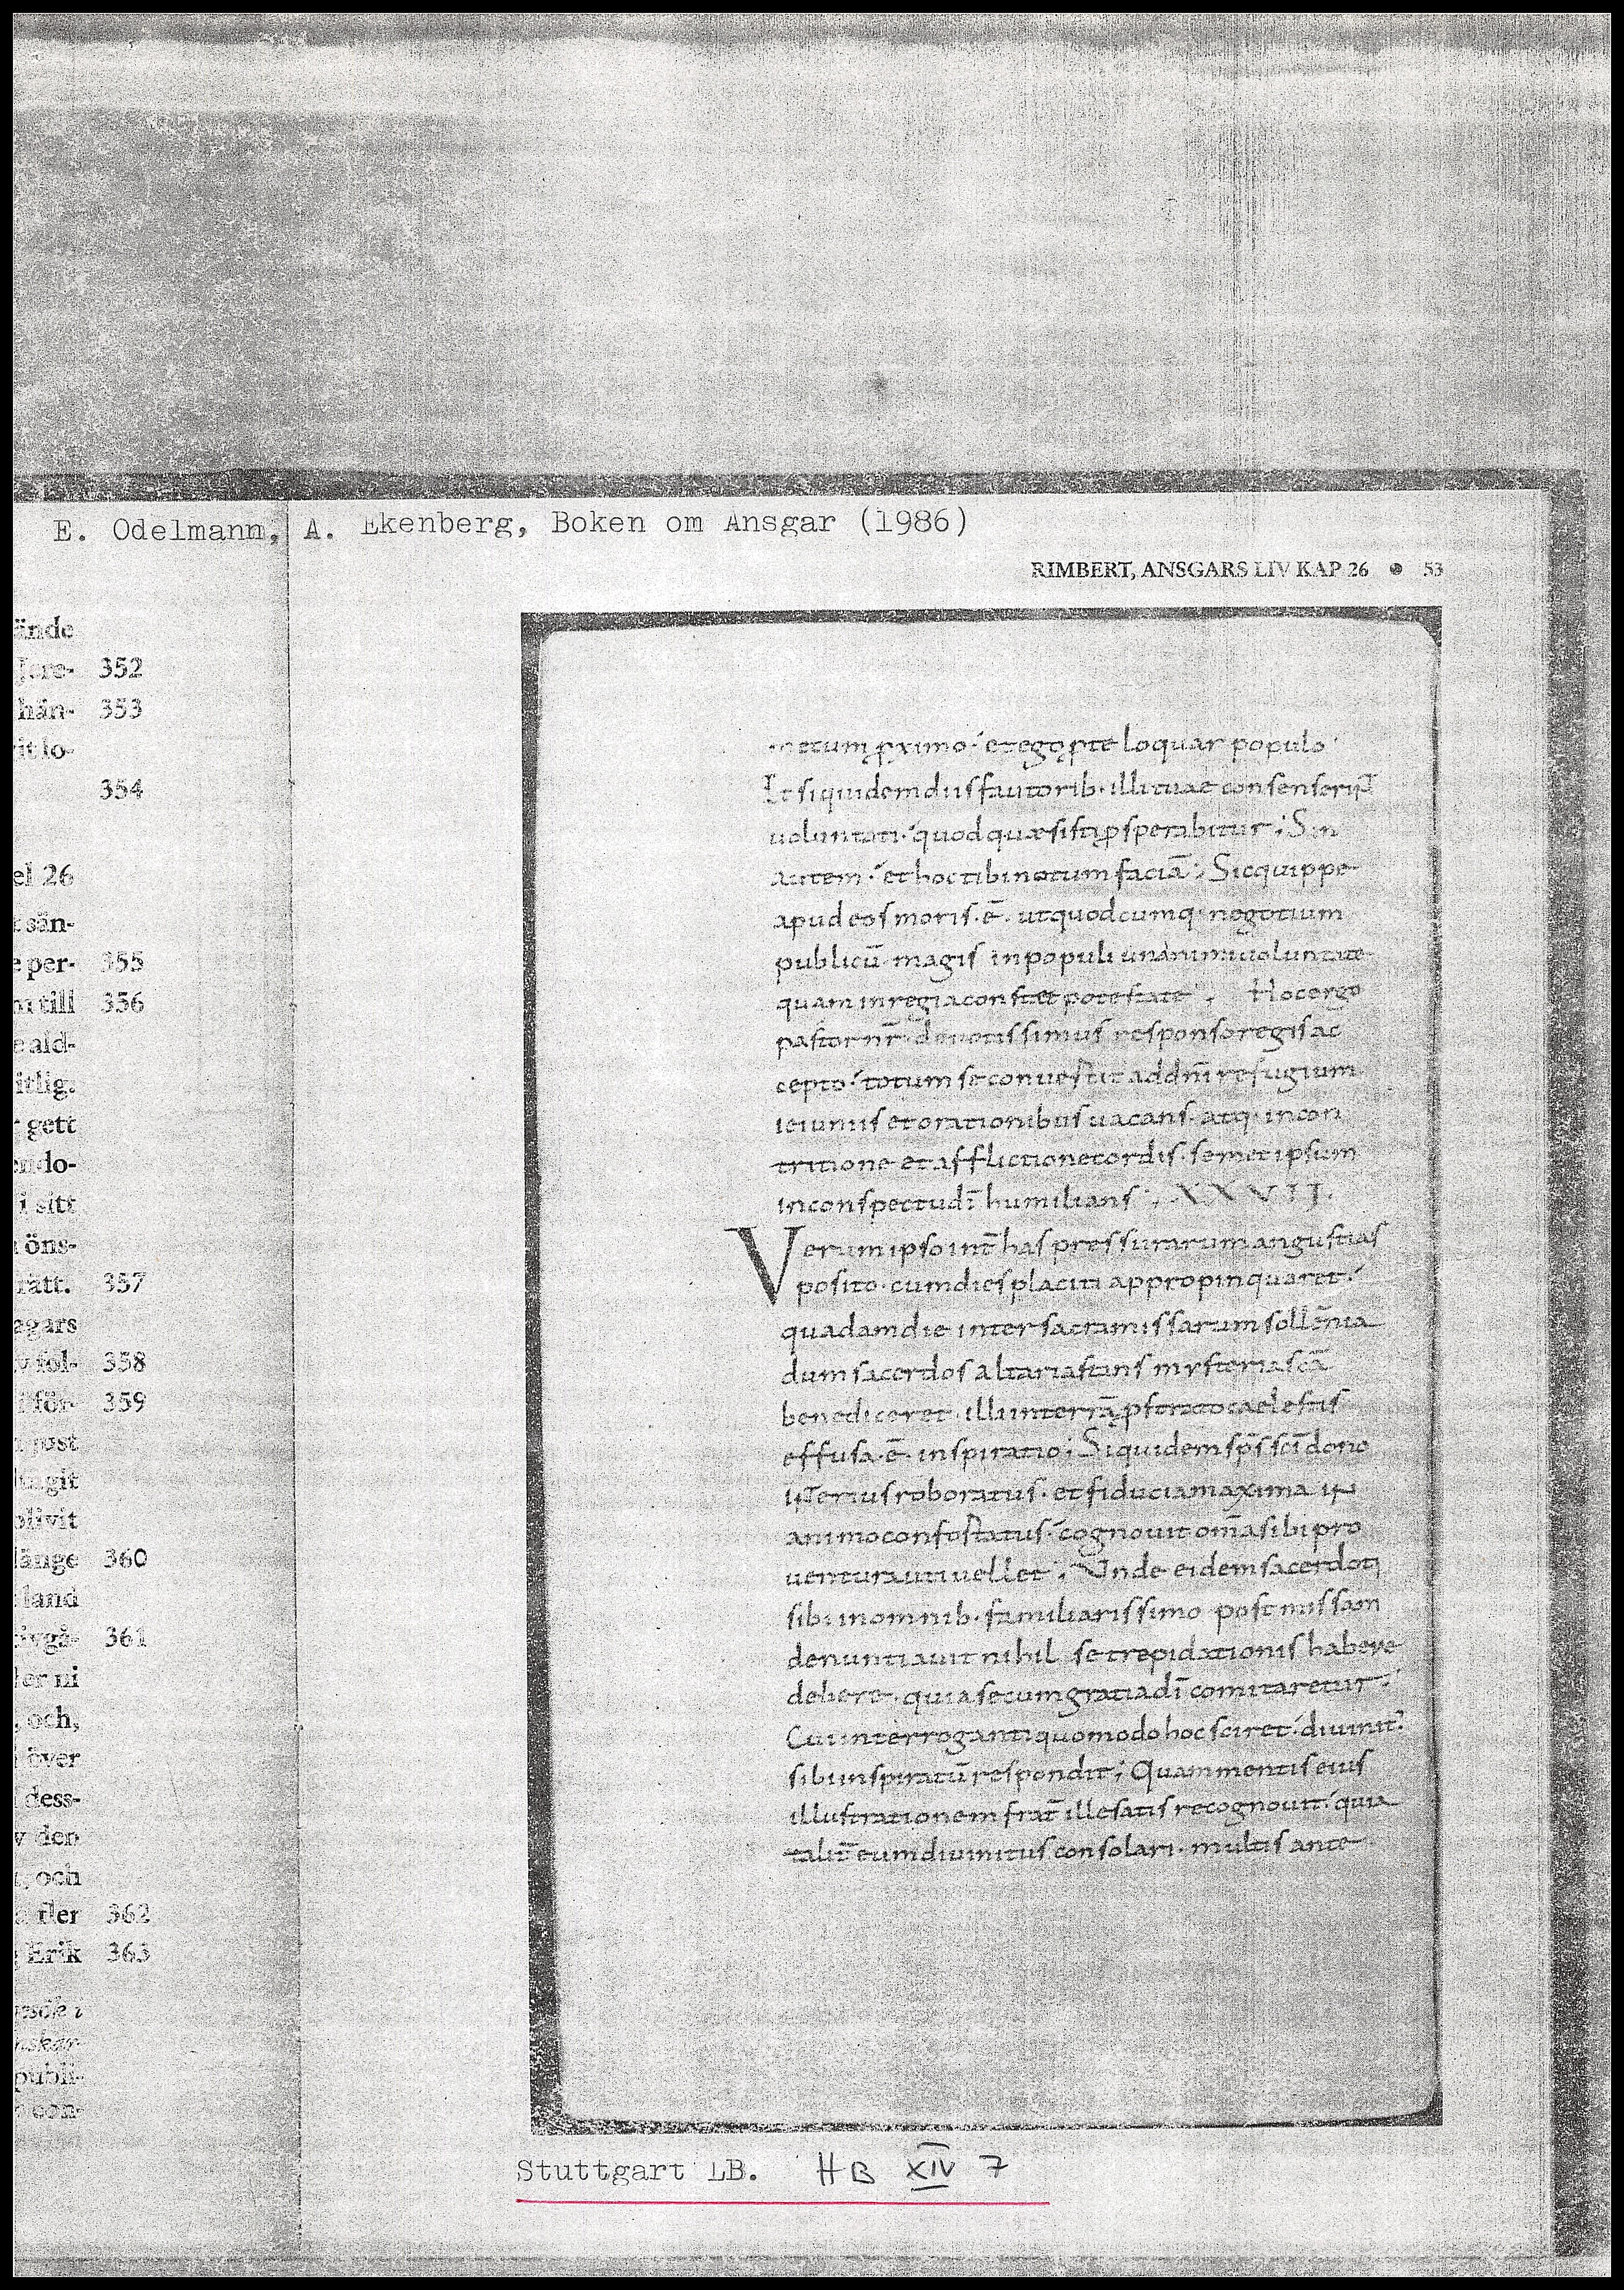 E. Odelmann, A. Ekenberg, Boken om Ansgar (1986)
RIMBERT, ANSGARS LIV KAP 26 • 53
ände
352
hän- 353
it lo-
354
el 26
sän-
per- 355
till 356
ald-
itlig.
gett
do-
i sitt
öns-
rätt. 357
agars
fol- 358
för- 359
post
ngit
blivit
länge 360
land
361
er ni
, och,
över
dess-
den
och
fler 362
Erik 363
publi-
con-
etum p̱ximo· et ego p te loquar populo·
Et siquidem dii ſfautorib· illi tuae conſenſerint
uoluntati· quod quæſiſti ꝓſperabitur; Sin
autem· et hoc tibi notum faciā; Sic quippe
apud eoſ moriſ· ē· ut quodcumq· negotium
publicū magiſ in populi unanimi uoluntate
quam in regia conſtet poteſtate·, Hoc ergo
paſtor nr̄ deuotiſſimuſ reſponſo regiſ ac
cepto· totum ſe conuertit ad dn̄m refugium
ieiuniiſ et orationibuſ uacanſ· atq· in con
tritione et afflictione cordiſ· ſemet ipſum
in conſpectu dī humilianſ·, XXVII.
Verum ipſo int̄ haſ preſſurarum anguſtiaſ
poſito· cum dieſ placiti appropinquaret·
quadam die inter ſacra miſſarum ſollēnia
dum ſacerdoſ altari aſtanſ myſteria ſcā
benediceret· illi in terrā pſtrato caeleſtiſ
effuſa· ē· inſpiratio; Siquidem ſpſ̄ ſcī dono
interiuſ roboratuſ· et fiducia maxima in
animo confortatuſ· cognouit om̄a ſibi pro
uentura uti uellet·; Unde eidem ſacerdoti
ſibi in omnib· familiariſſimo poſt miſſam
denuntiauit nihil ſe trepidationiſ habere
debere· quia ſecum gratia dī comitaretur·
Cui interroganti quomodo hoc ſciret· diuinit᾽
ſibi inſpiratū reſpondit; Quam mentiſ eiuſ
illuſtrationem frat̄ ille ſatiſ recognouit· quia
talit̄ eum diuinituſ conſolari· multiſ ante
Stuttgart LB. HB XIV 7